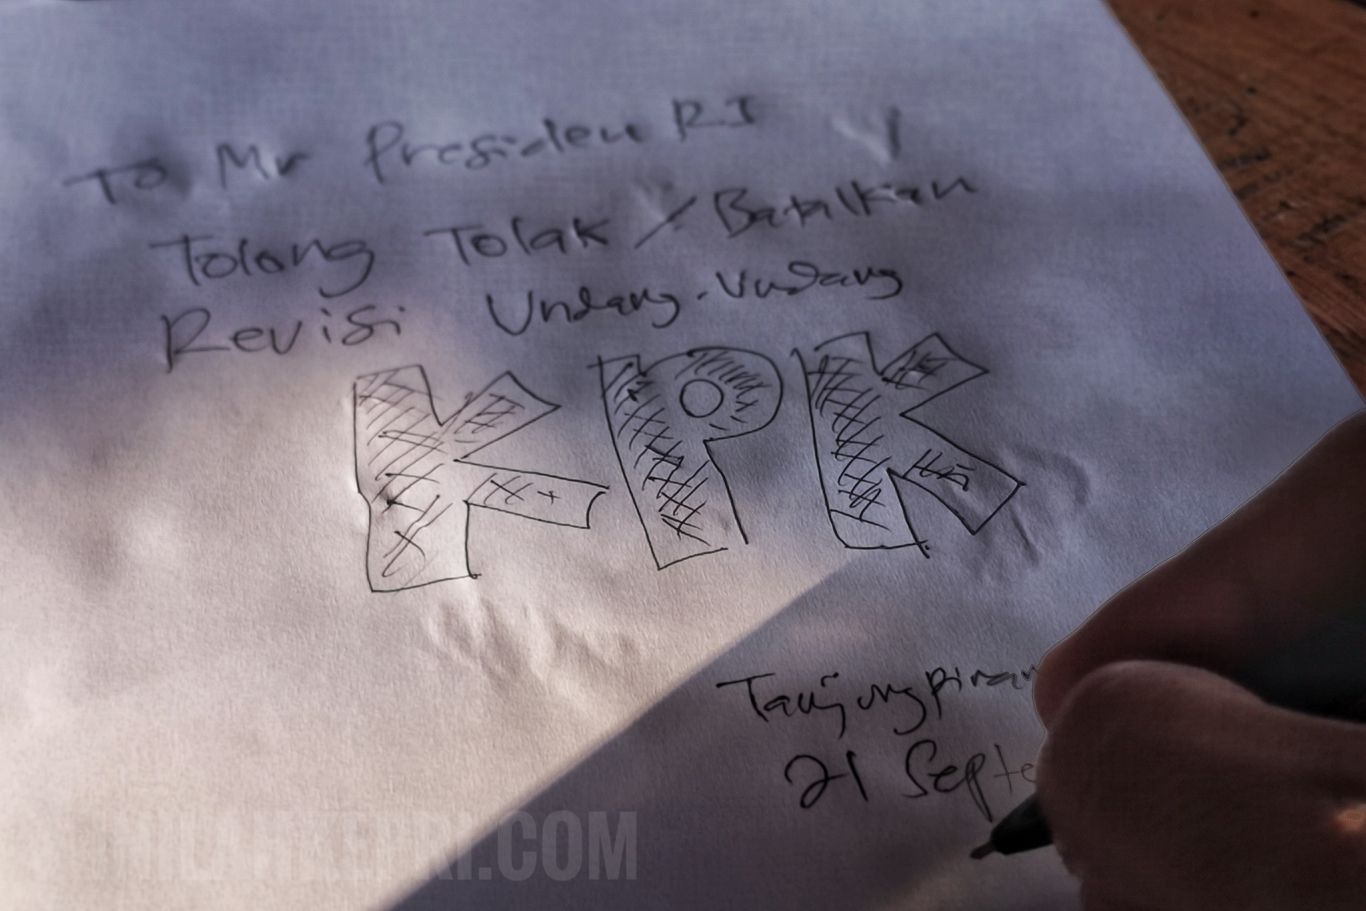 To Mr Presiden RI
Tolong Tolak / Batalkan
Revisi Undang-Undang
KPK
Tanjungpinan
21 Septe